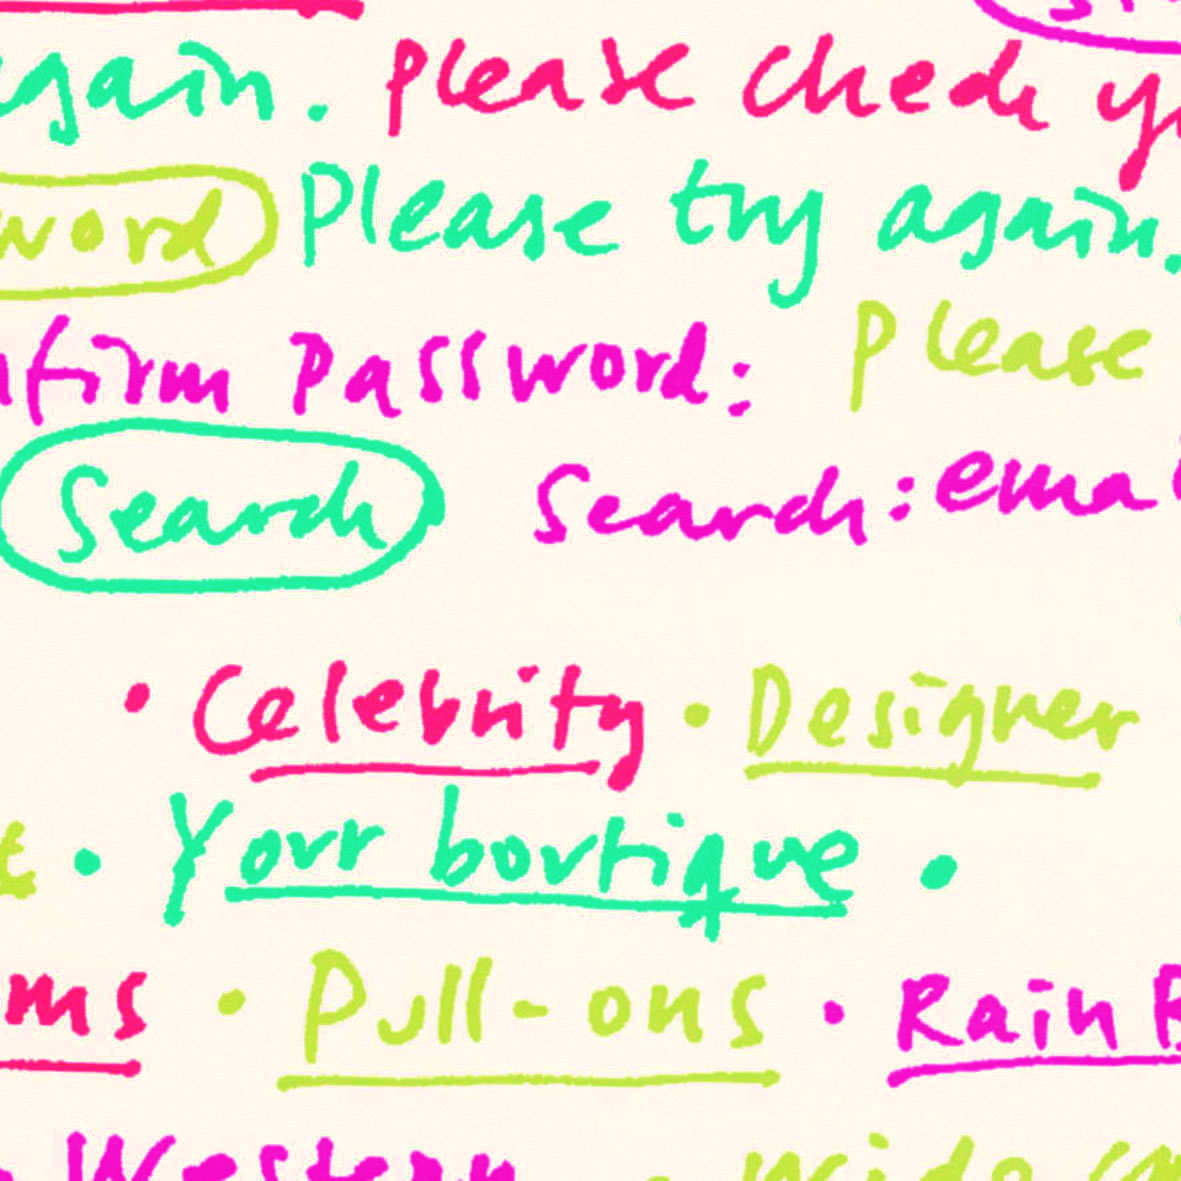 again. Please check y
word Please try again.
nfirm Password: Please
Search Search: emai
• Celebrity • Designer
• Your boutique •
ms • Pull-ons • Rain B
Western • wide ca